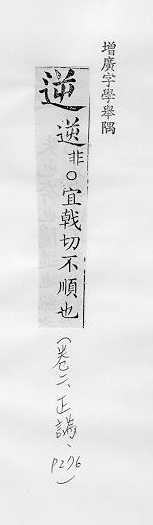 增廣字學舉隅
逆 逆非○宜戟切不順也
(卷二、正譌、P276)